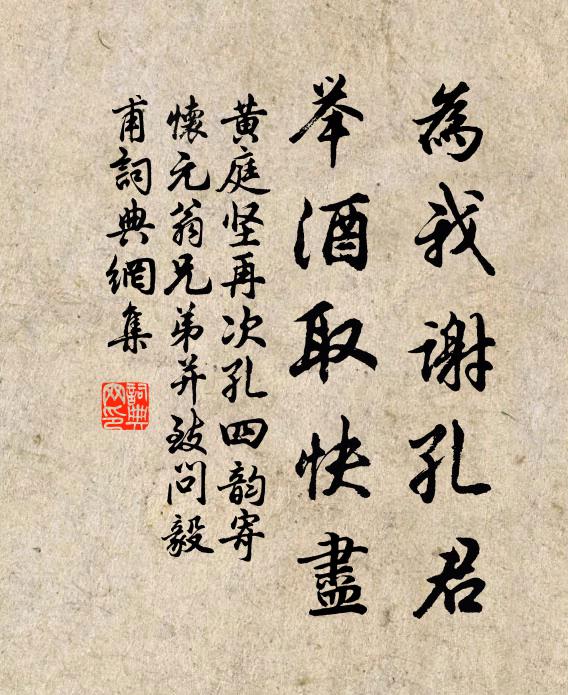 為我謝孔君
举酒取快盡
黄庭坚再次孔四韵寄
懷元翁兄弟并致问毅
甫詞典網集
詞典网印